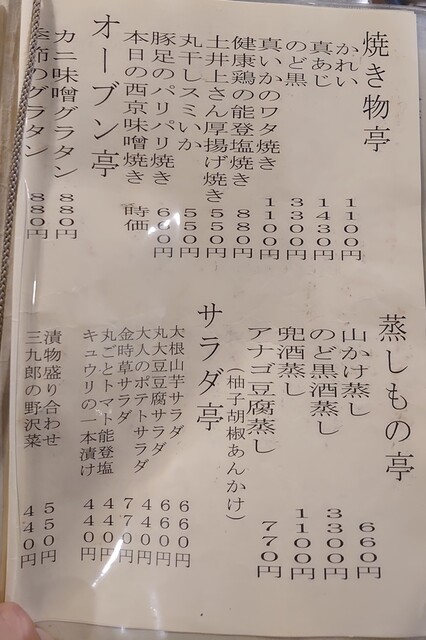 焼き物亭
かれい 1100円
真あじ 1430円
のど黒 3300円
真いかのワタ焼き 1100円
健康鶏の能登塩焼き 880円
土井上さん厚揚げ焼き 550円
丸干しスミいか 550円
豚足のパリパリ焼き 660円
本日の西京味噌焼き 時価
オーブン亭
カニ味噌グラタン 880円
季節のグラタン 880円
蒸しもの亭
山かけ蒸し 660円
のど黒酒蒸し 3300円
兜酒蒸し 1100円
アナゴ豆腐蒸し 770円
(柚子胡椒あんかけ)
サラダ亭
大根山芋サラダ 660円
丸大豆豆腐サラダ 660円
大人のポテトサラダ 440円
金時草サラダ 770円
丸ごとトマト能登塩 440円
キュウリの一本漬け 440円
漬物盛り合わせ 550円
三九郎の野沢菜 440円